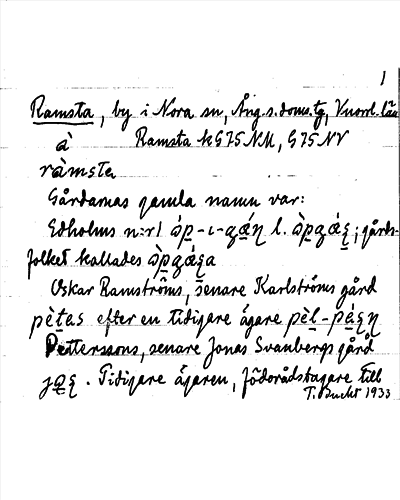 1
Ramsta, by i Nora sn, Ång.s.doms.tg, Vnorrl. län
à Ramsta k G75NM, G75NV
ràmsta
Gårdarnas gamla namn var:
Edholms n:r1 l. gårds-
folket kallades
Oskar Ramströms, senare Karlströms gård
pètas efter en tidigare ägare
Petterssons, senare Jonas Svanbergs gård
. Tidigare ägaren, födorådstagare till
T. Bucht 1933